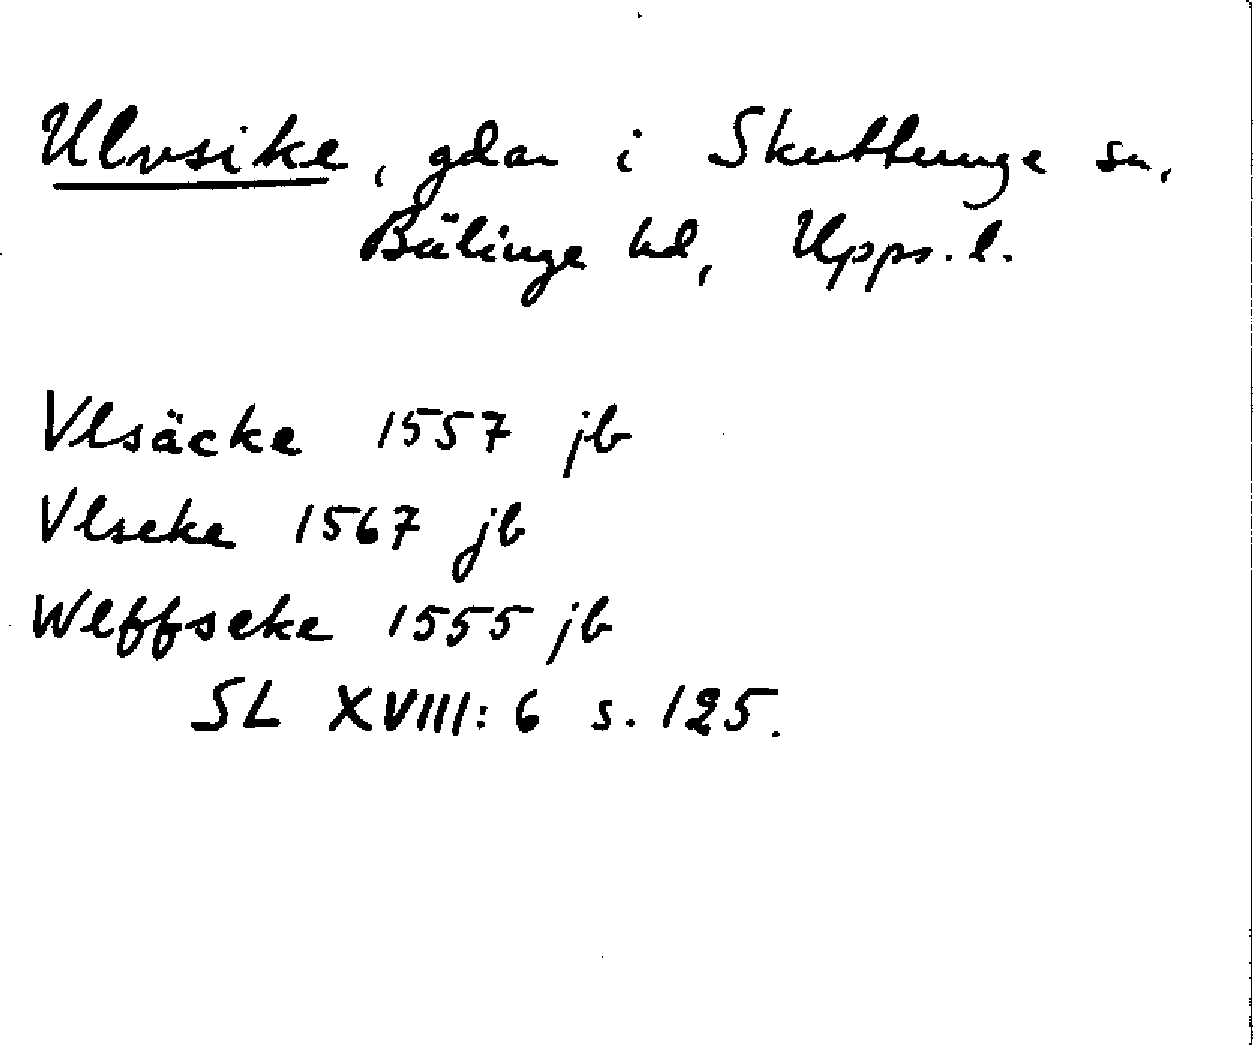 Ulvsike, gdar i Skuttunge sn,
Bälinge hd, Upps. l.
Vlsäcke 1557 jb
Vlseke 1567 jb
Wlffseke 1555 jb
SL XVIII: 6 s. 125.